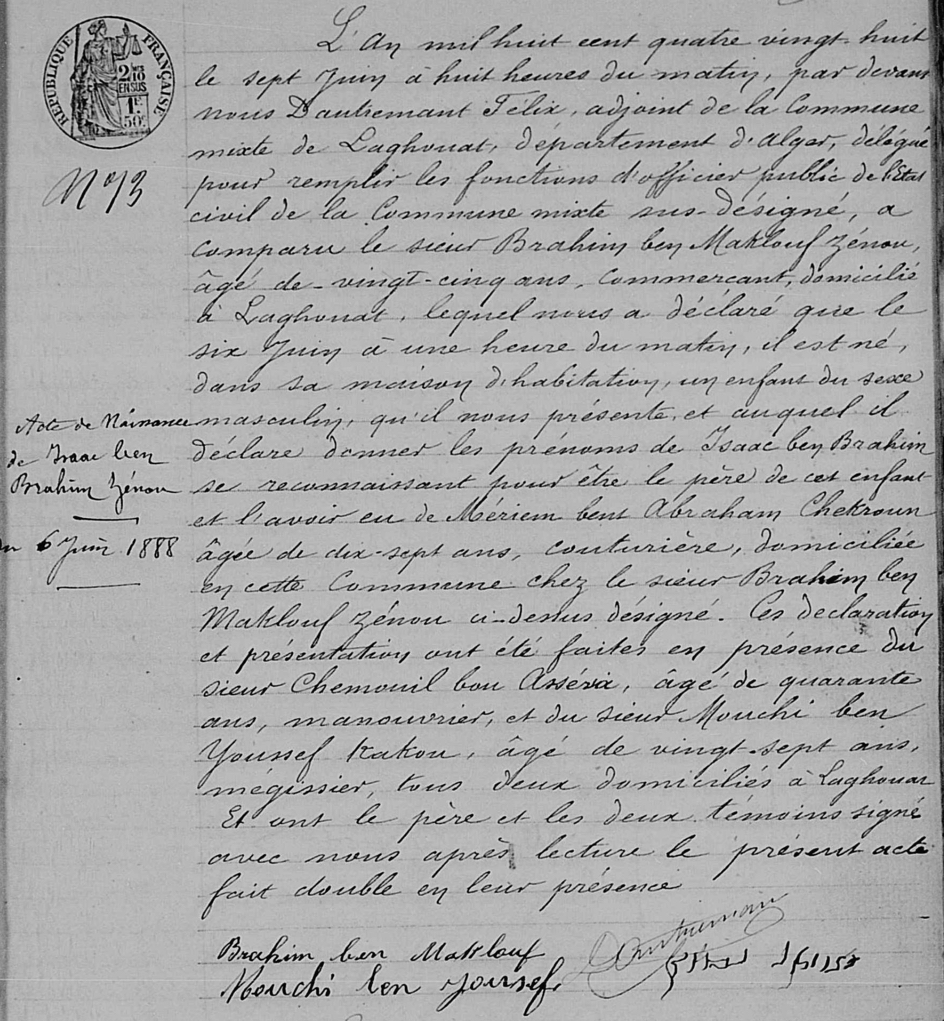 RÉPUBLIQUE FRANÇAISE
2/10
EN SUS
1F
50c
N° 73
Acte de Naissance
de Isaac ben
Brahim Zénou
du 6 Juin 1888
L'An mil huit cent quatre vingt-huit
le sept Juin à huit heures du matin, par devant
nous Dautremant Félix, adjoint de la Commune
mixte de Laghouat, département d'Alger, délégué
pour remplir les fonctions d'officier public de l'Etat
civil de la Commune mixte sus-désigné, a
comparu le sieur Brahim ben Maklouf Zénou,
âgé de vingt-cinq ans, commerçant, domicilié
à Laghouat, lequel nous a déclaré que le
six Juin à une heure du matin, il est né,
dans sa maison d'habitation, un enfant du sexe
masculin, qu'il nous présente, et auquel il
déclare donner les prénoms de Isaac ben Brahim
se reconnaissant pour être le père de cet enfant
et l'avoir eu de Mériem bent Abraham Chekroun
âgée de dix-sept ans, couturière, domiciliée
en cette Commune chez le sieur Brahim ben
Maklouf Zénou ci-dessus désigné. Ces declaration
et présentation ont été faites en présence du
sieur Chemouil bou Asséra, âgé de quarante
ans, manouvrier, et du sieur Mouchi ben
Youssef Kakou, âgé de vingt-sept ans,
mégissier, tous deux domiciliés à Laghouat
Et ont le père et les deux témoins signé
avec nous après lecture le présent acte
fait double en leur présence
Brahim ben Maklouf
Mouchi ben Youssef
Dautremant